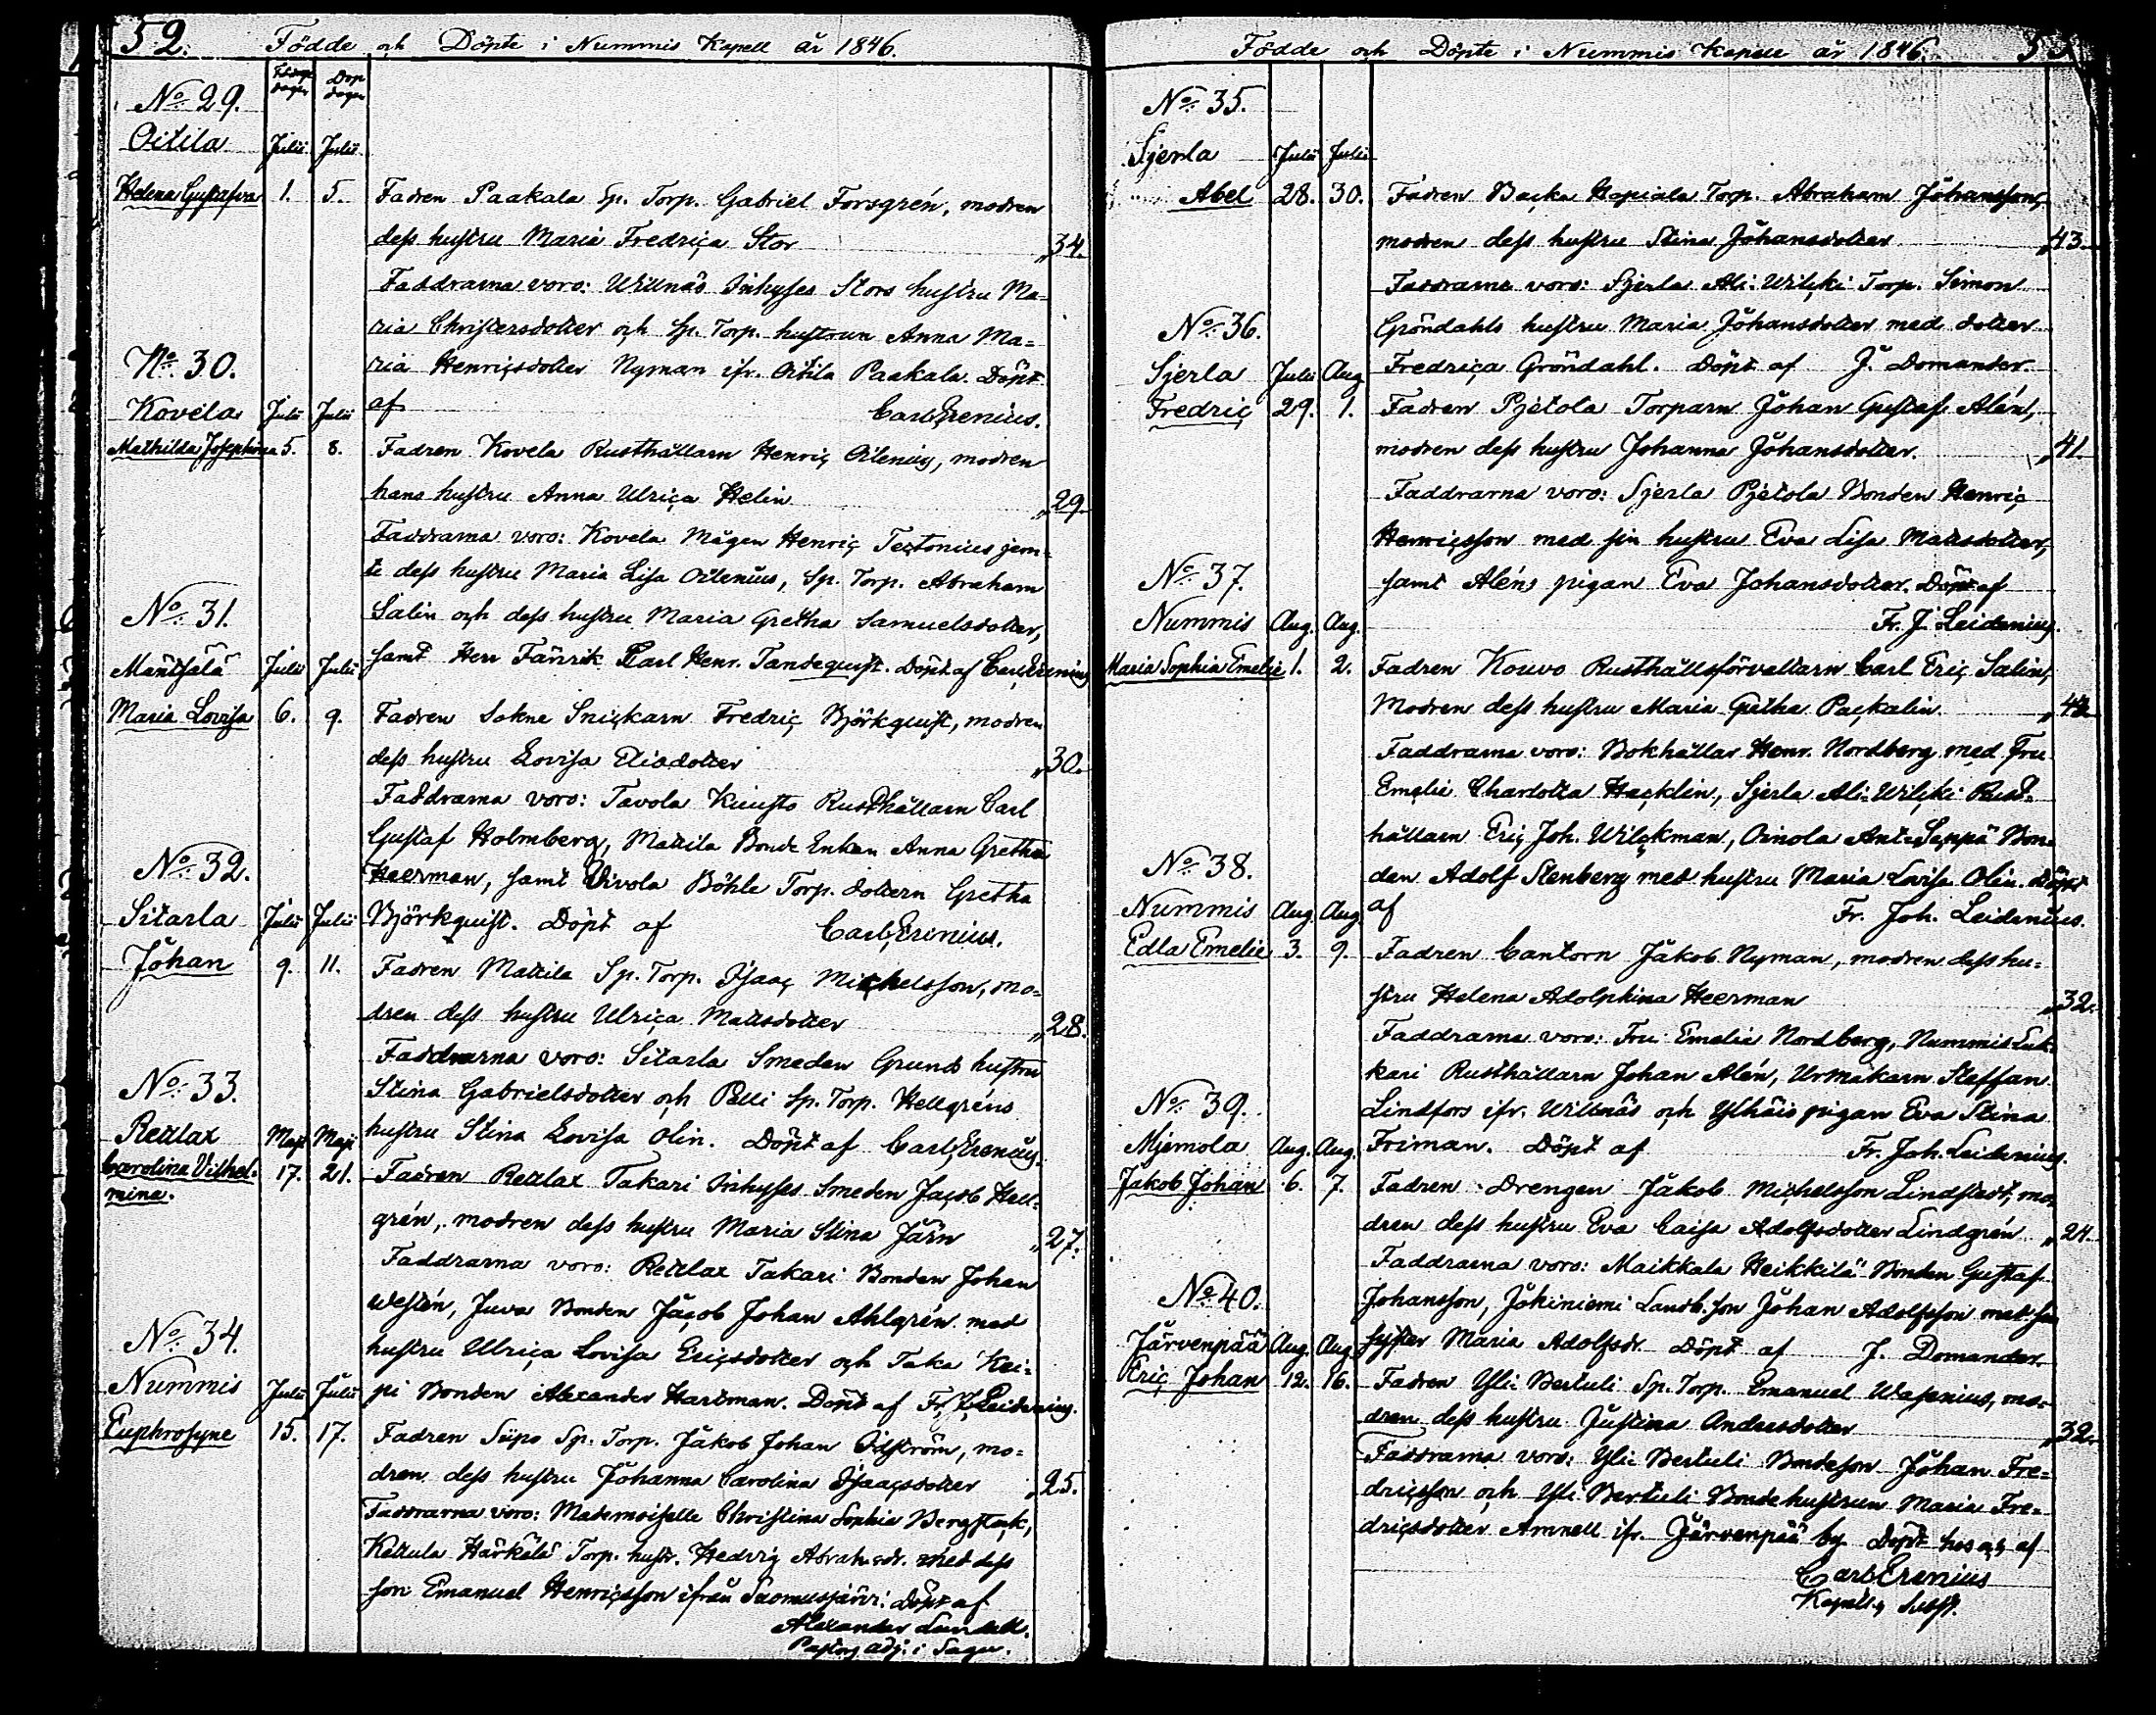 52.
Födde och Döpte i Nummis Kapell år 1846.
Dop
dagen
No 29.
Oitila Julii Julii
Helena Gustafva 1. 5. Fadren Paakala Sp. Torp. Gabriel Forsgrén, modren
dess hustru Maria Fredrica Stor „34.
Faddrarna voro: Willnäs Inhyses Stors hustru Ma=
ria Christersdotter och Sp. Torp. hustrun Anna Ma=
No 30.
ria Henricsdotter Nyman ifr. Oitila Paakala. Döpt
Kovela Julii Julii af Carl Erenius.
Mathilda Josephina 5. 8. Fadren Kovela Rusthållarn Henric Oilenius, modren
hans hustru Anna Ulrica Helin „29.
Faddrarna voro: Kovela Mågen Henric Tectonius jem=
te dess hustru Maria Lisa Oilenius, Sp. Torp. Abraham
No 31.
Salin och dess hustru Maria Gretha Samuelsdotter,
Mäntsälä Julii Julii samt Herr Fänrik Carl Henr. Tandequist. Döpt af Carl Erenius
Maria Lovisa 6. 9. Fadren Sokne Snickarn Fredric Björkquist, modren
dess hustru Lovisa Eliadotter „30.
Faddrarna voro: Tavola Kuusto Rusthållarn Carl
Gustaf Holmberg, Mattila Bonde Enkan Anna Gretha
No 32.
Heerman, samt Vivola Böhle Torp. dottern Gretha
Sitarla Julii Julii Björkquist. Döpt af Carl Erenius.
Johan 9. 11. Fadren Mattila Sp. Torp. Isaac Michelsson, mo=
dren dess hustru Ulrica Mattsdotter „28.
Faddrarna voro: Sitarla Smeden Grunds hustru
No 33.
Stina Gabrielsdotter och Pelli Sp. Torp. Hellgréns
Retlax Maji Maji hustru Stina Lovisa Olin. Döpt af Carl Erenius.
Carolina Vilhel=
mina. 17. 21. Fadren Retlax Takari Inhyses Smeden Jacob Hell=
grén, modren dess hustru Maria Stina Järn „27.
Faddrarna voro: Retlax Takari Bonden Johan
Westén, Juva Bonden Jacob Johan Ahlgrén med
No 34.
hustru Ulrica Lovisa Ericsdotter och Taka Kei=
Nummis Julii Julii pi Bonden Alexander Hartman. Döpt af Fr. J. Leidenius.
Euphrosyne 15. 17. Fadren Siipo Sp. Torp. Jakob Johan Öfström, mo=
dren dess hustru Johanna Carolina Isaacsdotter „25.
Faddrarna voro: Mademoiselle Christina Sophia Bergstack,
Kettula Härkälä Torp. hustr. Hedvig Abrahsdr. med dess
son Emanuel Henricsson ifrån Suomusjärvi. Döpt af
Alexander Lundell.
Pastors adj. i Sagu.
Födde och Döpte i Nummis Kapell år 1846.
No 35.
Sjerla Julii Julii
Abel 28. 30. Fadren Backa Hapiala Torp. Abraham Johansson,
modren dess hustru Stina Johansdotter „43.
Faddrarna voro: Sjerla Ali-Wilcki Torp. Simon
No 36.
Gröndahls hustru Maria Johansdotter med dotter
Sjerla Julii Aug. Fredrica Gröndahl. Döpt af J. Domander.
Fredric 29. 1. Fadren Pjetola Torparn Johan Gustaf Alén,
modren dess hustru Johanna Johansdotter. „41
Faddrarna voro: Sjerla Pjetola Bonden Henric
Henricsson med sin hustru Eva Lisa Mattsdotter,
No 37.
samt Aléns pigan Eva Johansdotter. Döpt af
Nummis Aug. Aug. Fr. J. Leidenius.
Maria Sophia Emelie 1. 2. Fadren Kouvo Rusthållsförvaltarn Carl Eric Salin,
Modren dess hustru Maria Gretha Packalin. „42
Faddrarna voro: Bokhållar Henr. Nordberg med Fru
Emelie Charlotta Hacklin, Sjerla Ali-Wilcki Rust=
hållarn Eric Joh. Wilckman, Oinola Ant-Seppä Bon=
No 38.
den Adolf Stenberg med hustru Maria Lovisa Olin. Döpt
Nummis Aug. Aug. af Fr. Joh. Leidenius.
Edla Emelie 3. 9. Fadren Cantorn Jakob Nyman, modren dess hu=
stru Helena Adolphina Heerman „32.
Faddrarna voro: Fru Emelie Nordberg, Nummis Luk=
kari Rusthållarn Johan Alén, Urmakarn Steffan
No 39.
Lindfors ifr. Willnäs och Ylhäis pigan Eva Stina
Mjemola Aug. Aug. Friman. Döpt af Fr. Joh. Leidenius.
Jakob Johan 6. 7. Fadren Drengen Jakob Michelsson Lindstedt, mo=
dren dess hustru Eva Caisa Adolfsdotter Lindgrén „24.
Faddrarna voro: Maikkala Heikkilä Bonden Gustaf
No 40.
Johansson, Jokiniemi Landb. son Johan Adolfsson med sin
Järvenpää Aug. Aug. syster Maria Adolfsdr. Döpt af J. Domander.
Eric Johan 12. 16. Fadren Yli-Bertuli Sp. Torp. Emanuel Wasenius, mo=
dren dess hustru Justina Andersdotter „32.
Faddrarna voro: Yli-Bertuli Bondeson Johan Fre=
dricsson och Yli-Bertuli Bondehustrun Maria Fre=
dricsdotter Amnell ifr. Järvenpää by. Döpt hos oss af
Carl Erenius
Kapells Subst.